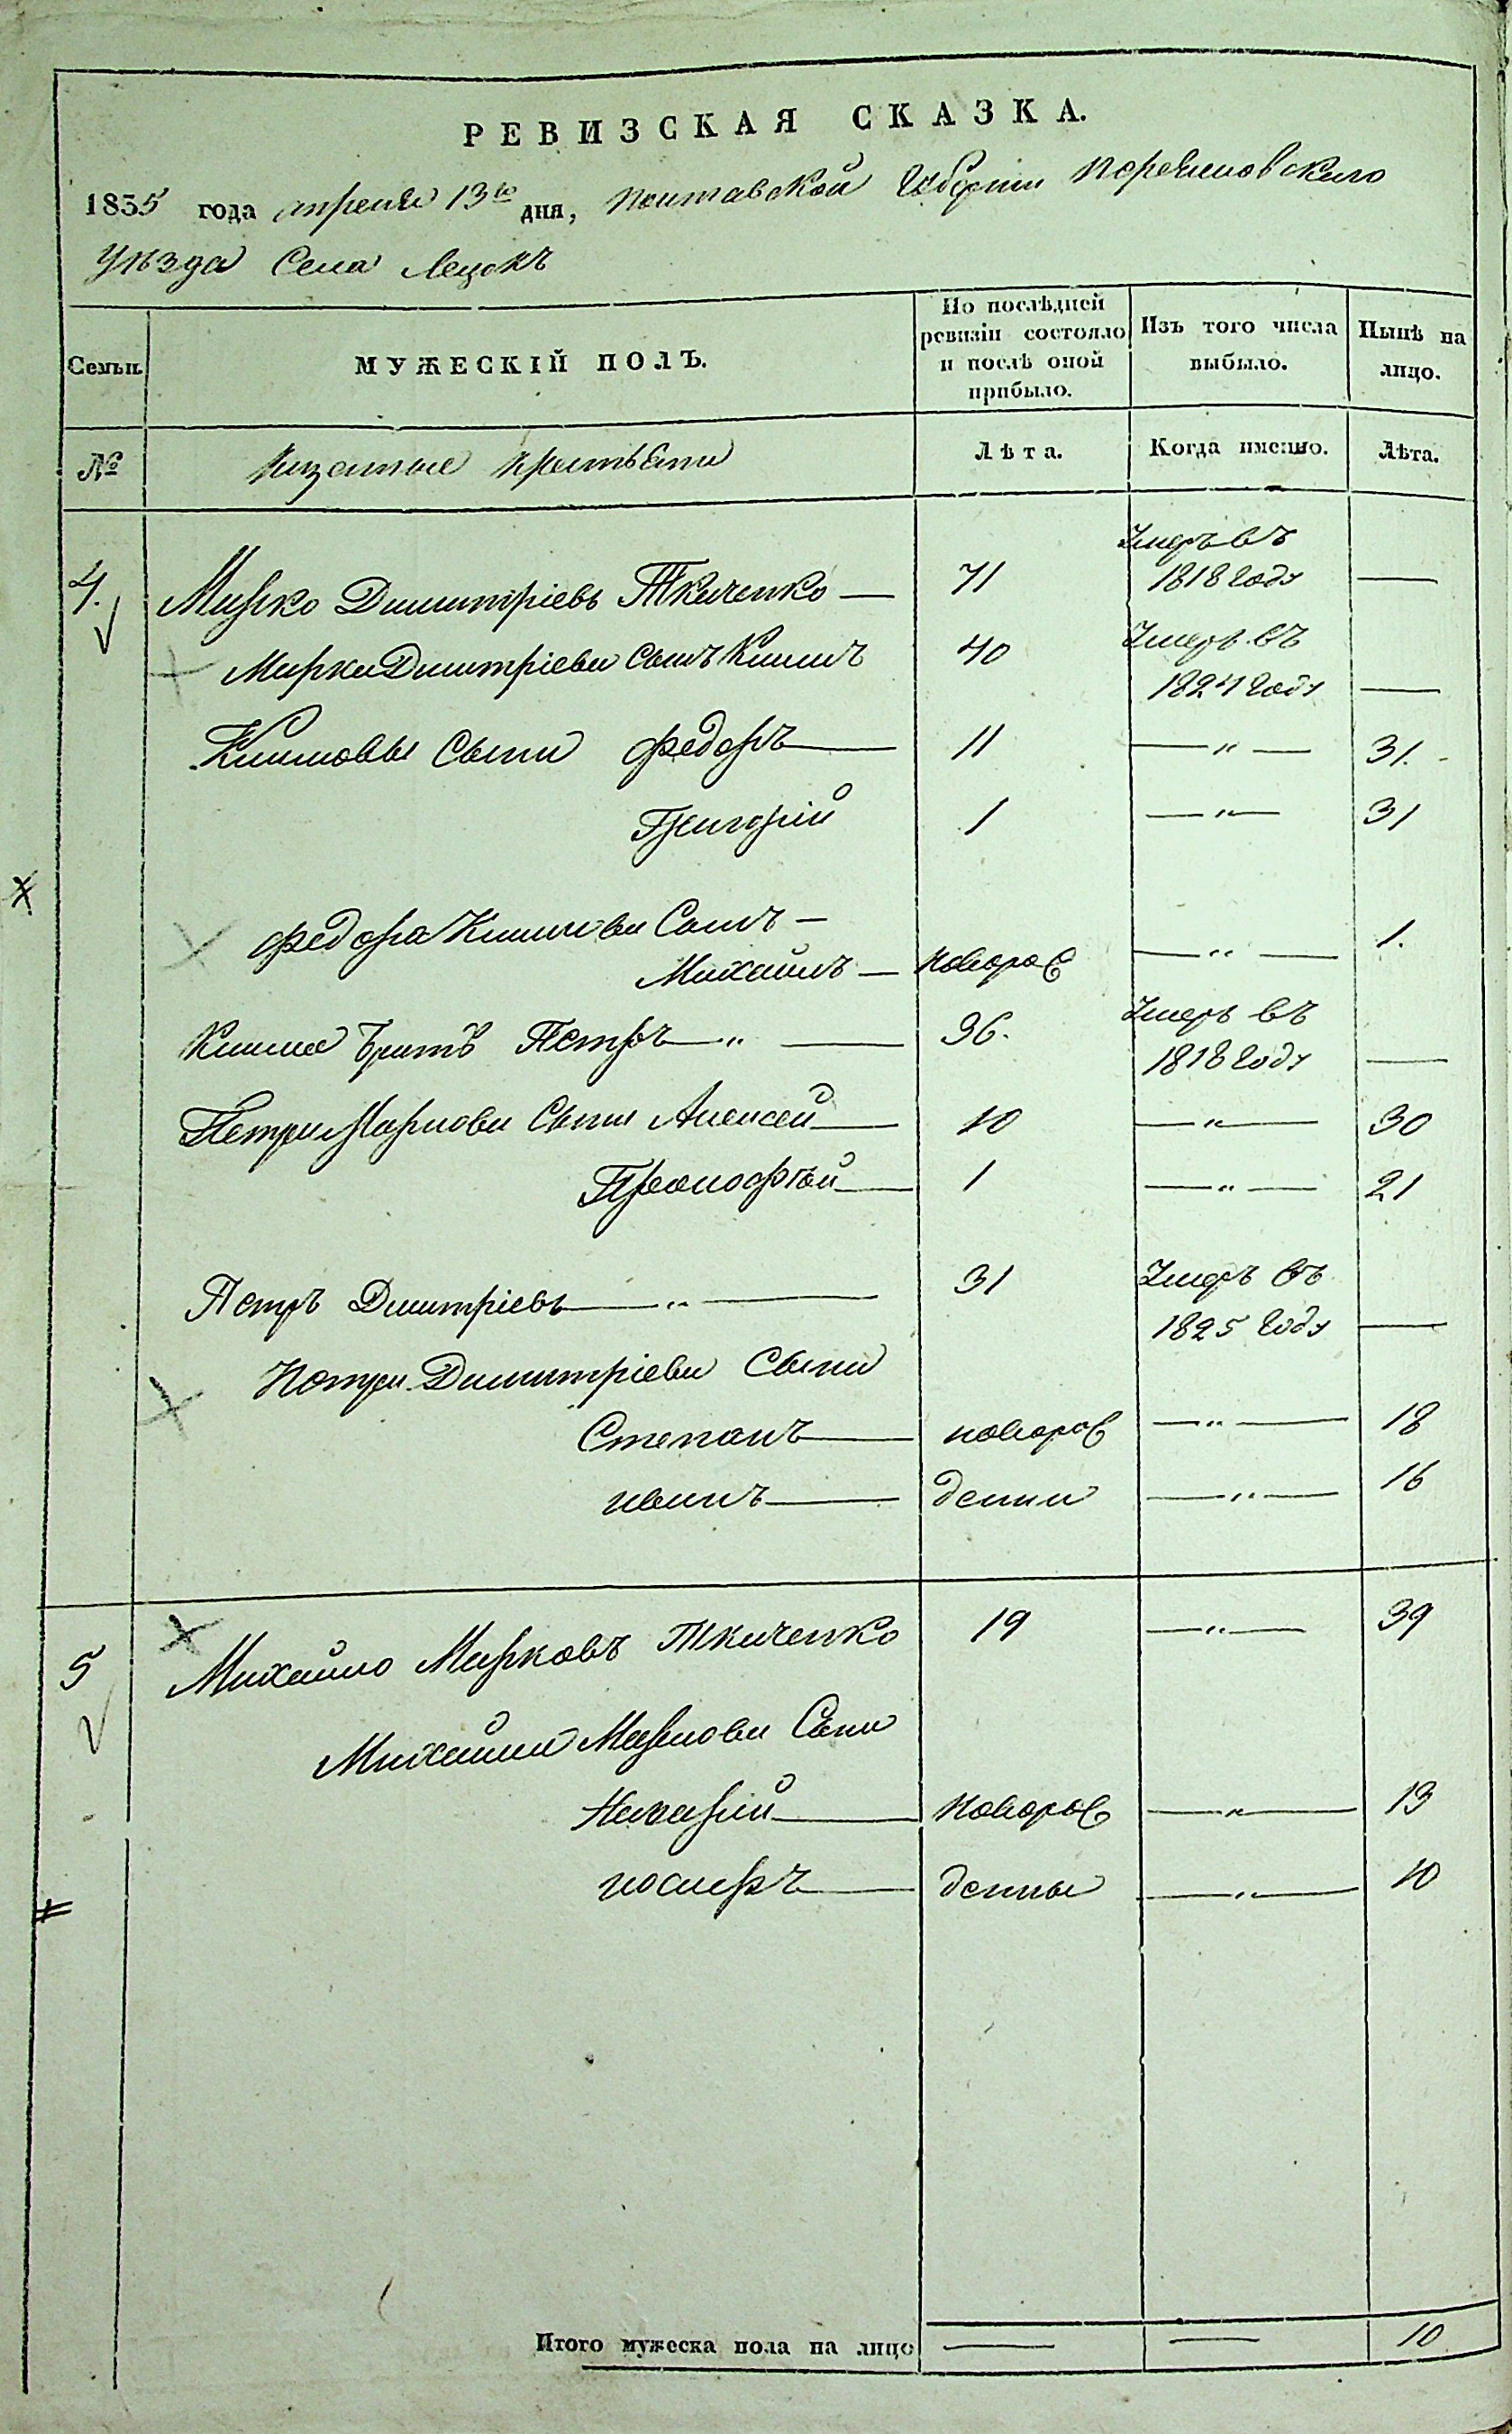 РЕВИЗСКАЯ СКАЗКА.
1835 года апреля 13го дня, Полтавской Губерніи Переяславского
Уѣзда Села Лецокъ
Семьи.
МУЖЕСКІЙ ПОЛЪ.
По послѣдней ревизіи состояло и послѣ оной прибыло.
Изъ того числа выбыло.
Нынѣ на лицо.
№
Казенные крестьяни
Лѣта.
Когда именно.
Лѣта.
4. Марко Димитріевъ Ткаченко — 71 Умеръ въ 1818 году —
Марка Димитріева Сынъ Климъ 40 Умеръ въ 1824 году —
Климовы Сыни Федоръ — 11 — " — 31.
Григорій 1 — " — 31
Федора Климова Сынъ —
Михаилъ — новорож — " — 1.
Клима Братъ Петръ — " — 36. Умеръ въ 1818 году —
Петра Маркова Сыни Алексей — 10 — " — 30
Прокофѣй — 1 — " — 21
Петръ Димитріевъ — " — 31 Умеръ въ 1825 году —
Петра Димитріева Сыни
Степанъ — новорож — " — 18
иванъ — денни — " — 16
5 Михайло Марковъ Ткаченко 19 — " — 39
Михайла Маркова Сыни
Назарій — новорож — " — 13
иосифъ — денны — " — 10
Итого мужеска пола на лицо — — 10